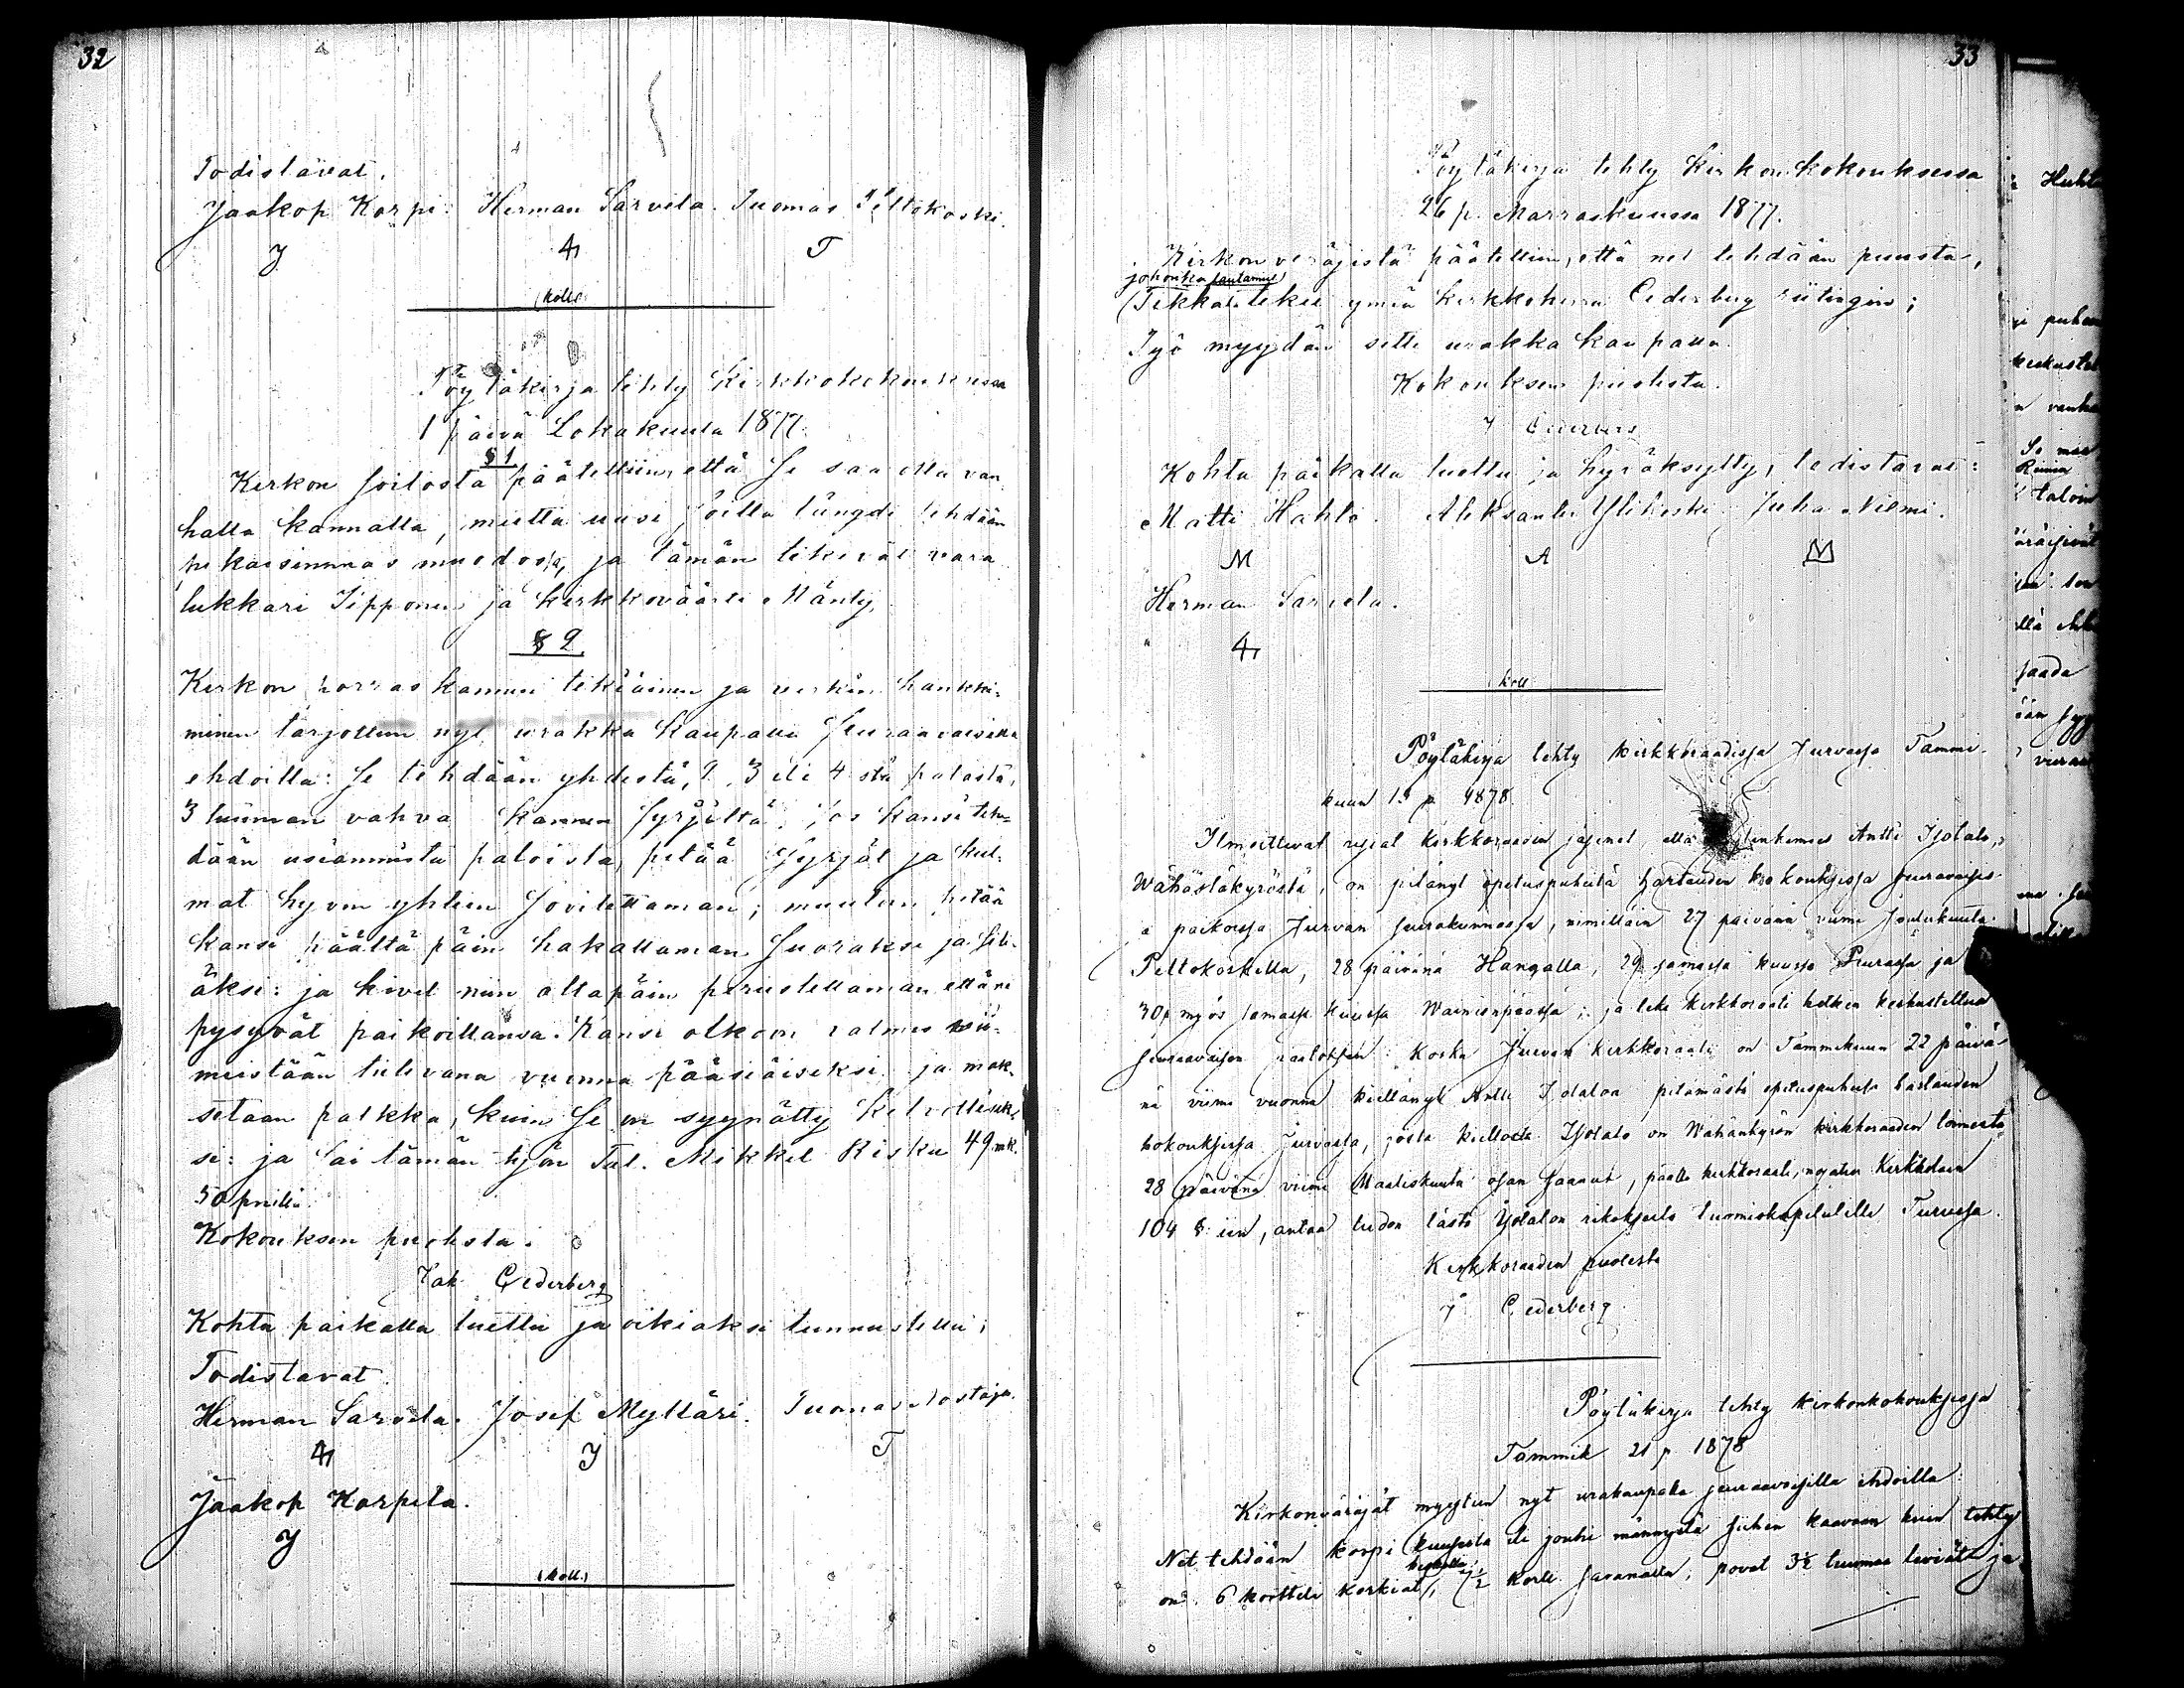 32
Todistavat.
Jaakop Korpi. Herman Sarvela. Tuomas Peltokoski.
J T
(koll.)
Pöytäkirja tehty Kirkkokokouksessa
1 päivä Lokakuuta 1877.
§ 1
Kirkon soitosta päätettiin, että se saa olla van
halla kannalla, mutta uusi soitto tehdään
muodosta, ja tämän tekivät vara
lukkari Tipponen ja kirkkoväärti Mänty.
§ 2.
Kirkon porras kannen tekiäinen ja hankki-
minen tarjottiin nyt urakka kaupalla seuraavaisilla
ehdoilla: se tehdään yhdestä, 2, 3 eli 4 stä palasta,
3 tuuman vahva kannen syrjältä; jos kansi teh-
dään useammista paloista, pitää syrjät ja kul-
mat hyvin yhteen sovitettaman; muuten pitää
kansi päältä päin hakattaman suoraksi ja sile-
äksi: ja kivet niin altapäin perustettaman että ne
pysyvät paikoillansa. Kansi olkoon valmis vii-
meistään tulevana vuonna pääsiäiseksi ja mak-
setaan palkka, kuin se on syynätty kelvollisek-
si: ja sai tämän työn Tal. Mikkel Risku 49 mk.
50 penniä.
Kokouksen puolesta.
Jak Cederberg
Kohta paikalla luettu ja oikiaksi tunnustettu;
Todistavat.
Herman Sarvela. Josef Myltäri. Tuomas Nostaja.
J T
Jaakop Karpela.
J
(koll.)
33
Pöytäkirja tehty Kirkonkokouksessa
26 p. Marraskuussa 1877.
Kirkon veräjistä päätettiin, että net tehdään puusta,
johonka
tekee kirkkoherra Cederberg riitingin;
Työ myydän sitte urakka kaupalla.
Kokouksen puolesta.
J Cederberg
Kohta paikalla luettu ja hyväksytty, todistavat:
Matti Hahto. Aleksanteri Ylikoski. Juha Niemi.
M A
Herman Sarvela.
koll
Pöytäkirja tehty kirkkoraadissa Jurvassa Tammi-
kuun 13 p 1878.
Ilmoittivat kirkkoraadin jäsenet, että Antti Isotalo,
Wähästäkyröstä, on pitänyt opetuspuheita hartauden kokouksissa seuraavaisis-
a paikoissa Jurvan seurakunnassa, nimittäin 27 päivänä viime Joulukuuta
Peltokoskella, 28 päivänä Hangalla, 29 samassa kuussa ja
30 p myös samassa kuussa ; ja teki kirkkoraati hetken keskusteltua
seuraavaisen päätöksen: Koska Jurvan kirkkoraati on Tammikuun 22 päivä-
nä viime vuonna kieltänyt Antti Isotaloa pitämästä opetuspuheita hartauden
kokouksissa Jurvassa, josta kiellosta Isotalo on Wähänkyrön kirkkoraadin toimesta
28 päivänä viime Maaliskuuta osan saanut, päätti kirkkoraati, nojaten Kirkkolain
104 § iin, antaa tiedon tästä Isotalon rikoksesta tuomiokapitulille Turussa.
Kirkkoraadin puolesta
J Cederberg.
Pöytäkirja tehty kirkonkokouksessa
Tammik 21 p 1878
Kirkonveräjät myytiin nyt urakaupalla seuraavaisilla ehdoilla:
Net tehdään korpi kuusesta eli männystä siihen kaavaan kuin tehty
on: 6 korttelia korkiat, 7½ kortt. saranalta, 3½ tuumaa leviät ja